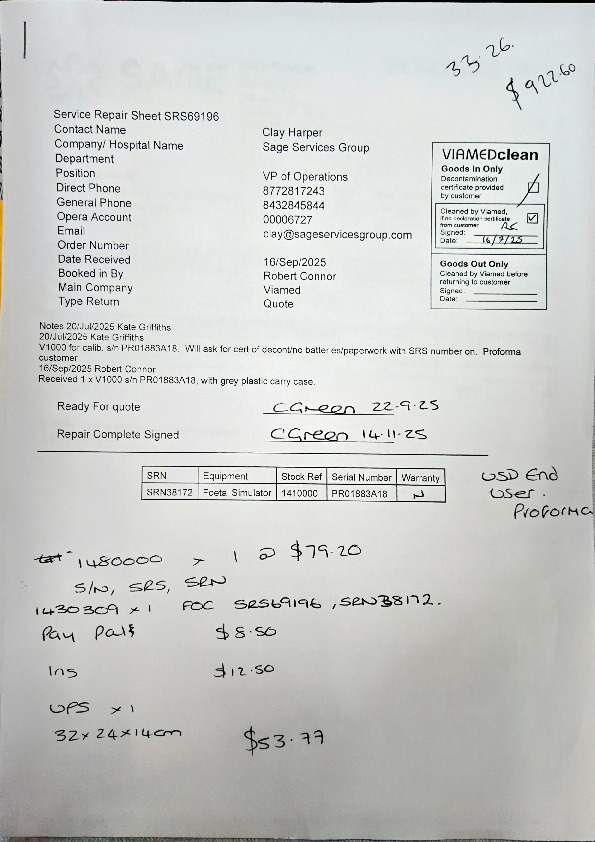 33.26.
$922.60
Service Repair Sheet SRS69196
Contact Name Clay Harper
Company/ Hospital Name Sage Services Group
Department
Position VP of Operations
Direct Phone 8772817243
General Phone 8432845844
Opera Account 00006727
Email clay@sageservicesgroup.com
Order Number
Date Received 16/Sep/2025
Booked in By Robert Connor
Main Company Viamed
Type Return Quote
VIAMEDclean
Goods In Only
Decontamination
certificate provided
by customer
Cleaned by Viamed,
if no declaration certificate
from customer
Signed:
Date: 16/9/25
Goods Out Only
Cleaned by Viamed before
returning to customer
Signed:
Date:
Notes 20/Jul/2025 Kate Griffiths
20/Jul/2025 Kate Griffiths
V1000 for calib. s/n PR01883A18. Will ask for cert of decont/no batteries/paperwork with SRS number on. Proforma
customer
16/Sep/2025 Robert Connor
Received 1 x V1000 s/n PR01883A18, with grey plastic carry case.
Ready For quote CGreen 22-9-25
Repair Complete Signed CGreen 14-11-25
SRN Equipment Stock Ref Serial Number Warranty
SRN38172 Foetal Simulator 1410000 PR01883A18 N
USD End
User.
Proforma
1480000 x 1 @ $79.20
S/N, SRS, SRN
1430309 x 1 FOC SRS69196, SRN38172.
Pay Pal $8.50
Ins $12.50
UPS x 1
32x24x14cm $53.77